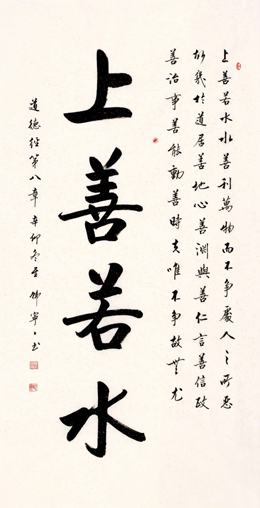 上善若水水善利萬物而不爭處人之所惡
故幾於道居善地心善淵與善仁言善信政
善治事善能動善時夫唯不爭故無尤
上善若水
道德經第八章辛卯冬書